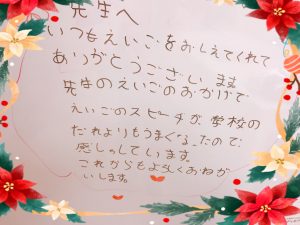 先生へ
いつもえいごをおしえてくれて
ありがとうございます
先生のえいごのおかげで
えいごのスピーチが学校の
だれよりもうまくなったので
感しゃしています。
これからもよろしくおねが
いします。